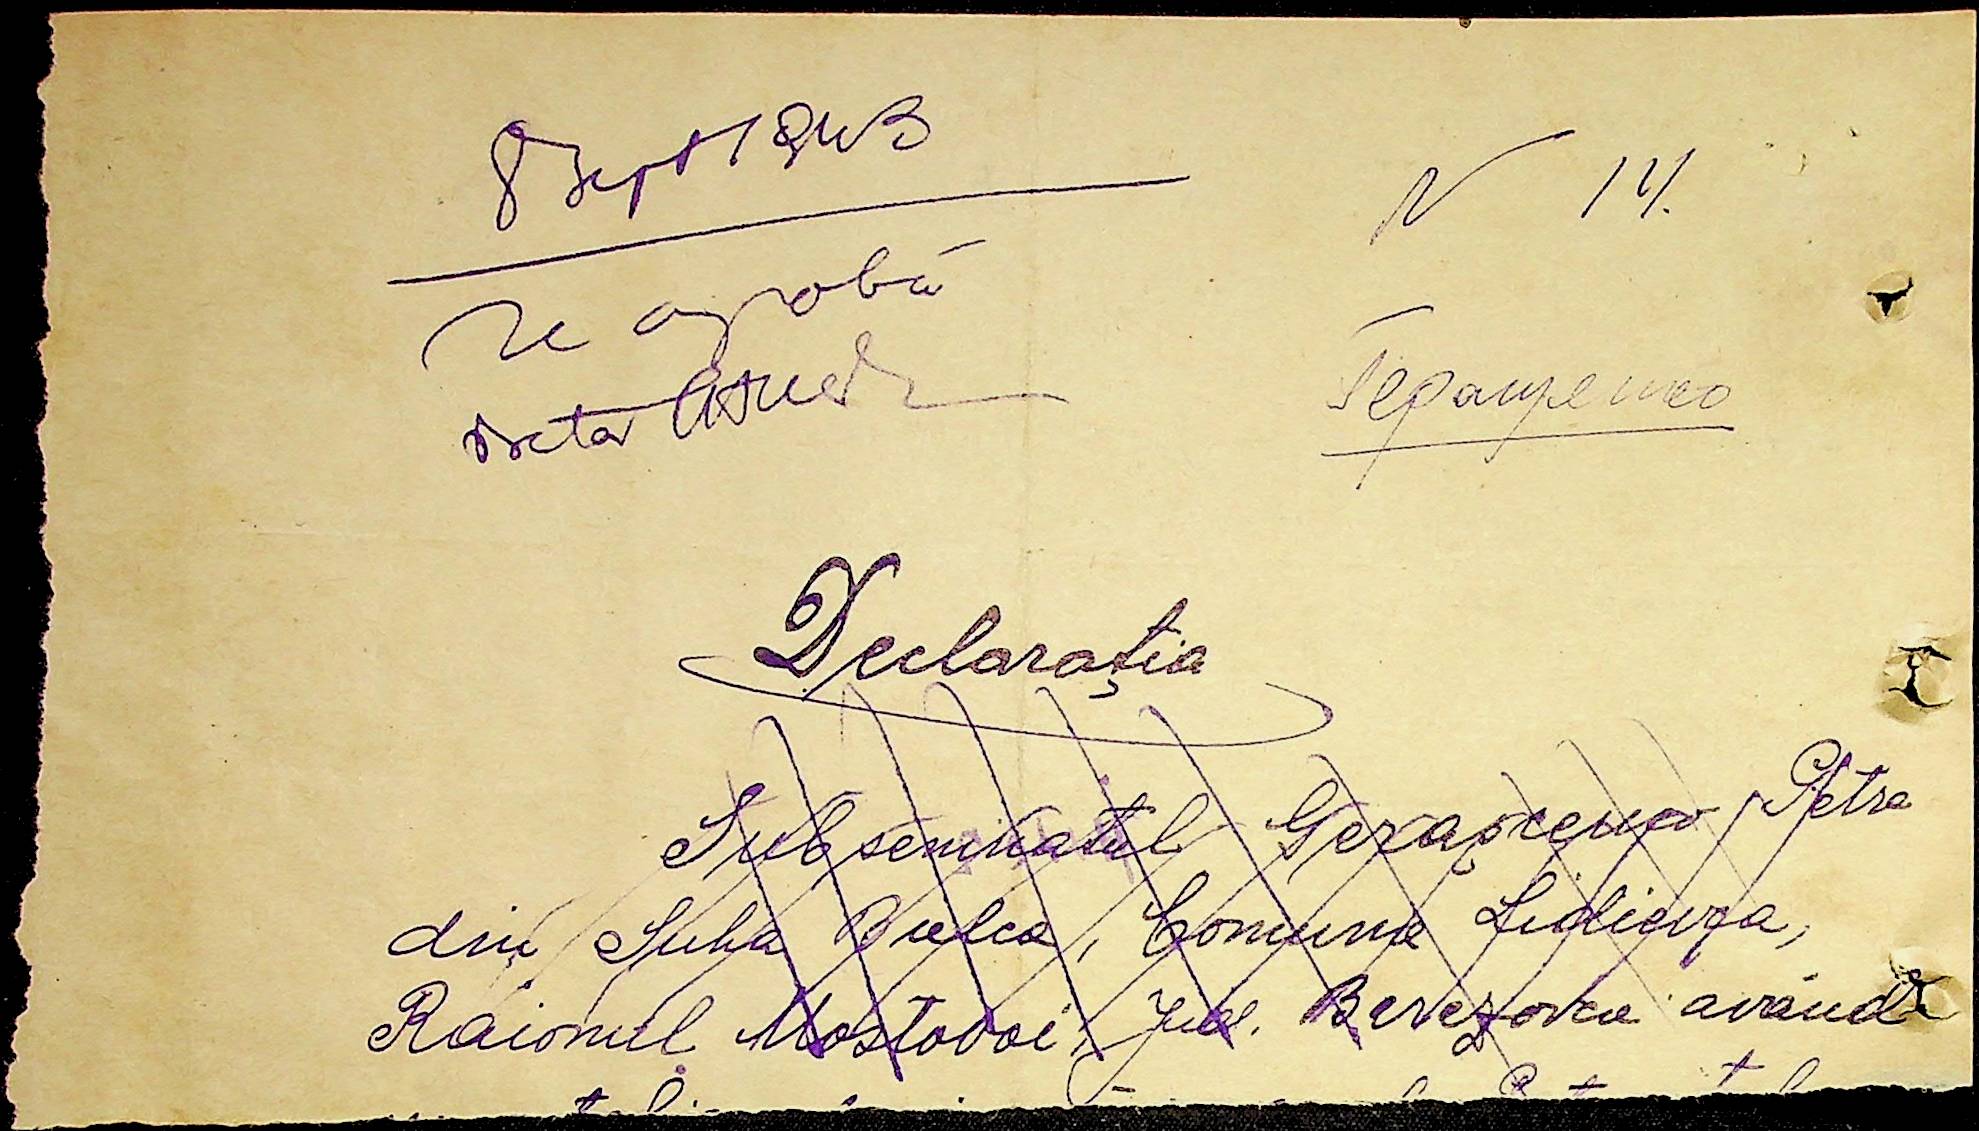 8 Sept 1943
N 14.
se aprobă
Геращенко
Declarația
Subsemnatul Gerașcenco Petre
din Suha Balca, Comuna Lidievca,
Raionul Mostovoi, Jud. Berezovca având